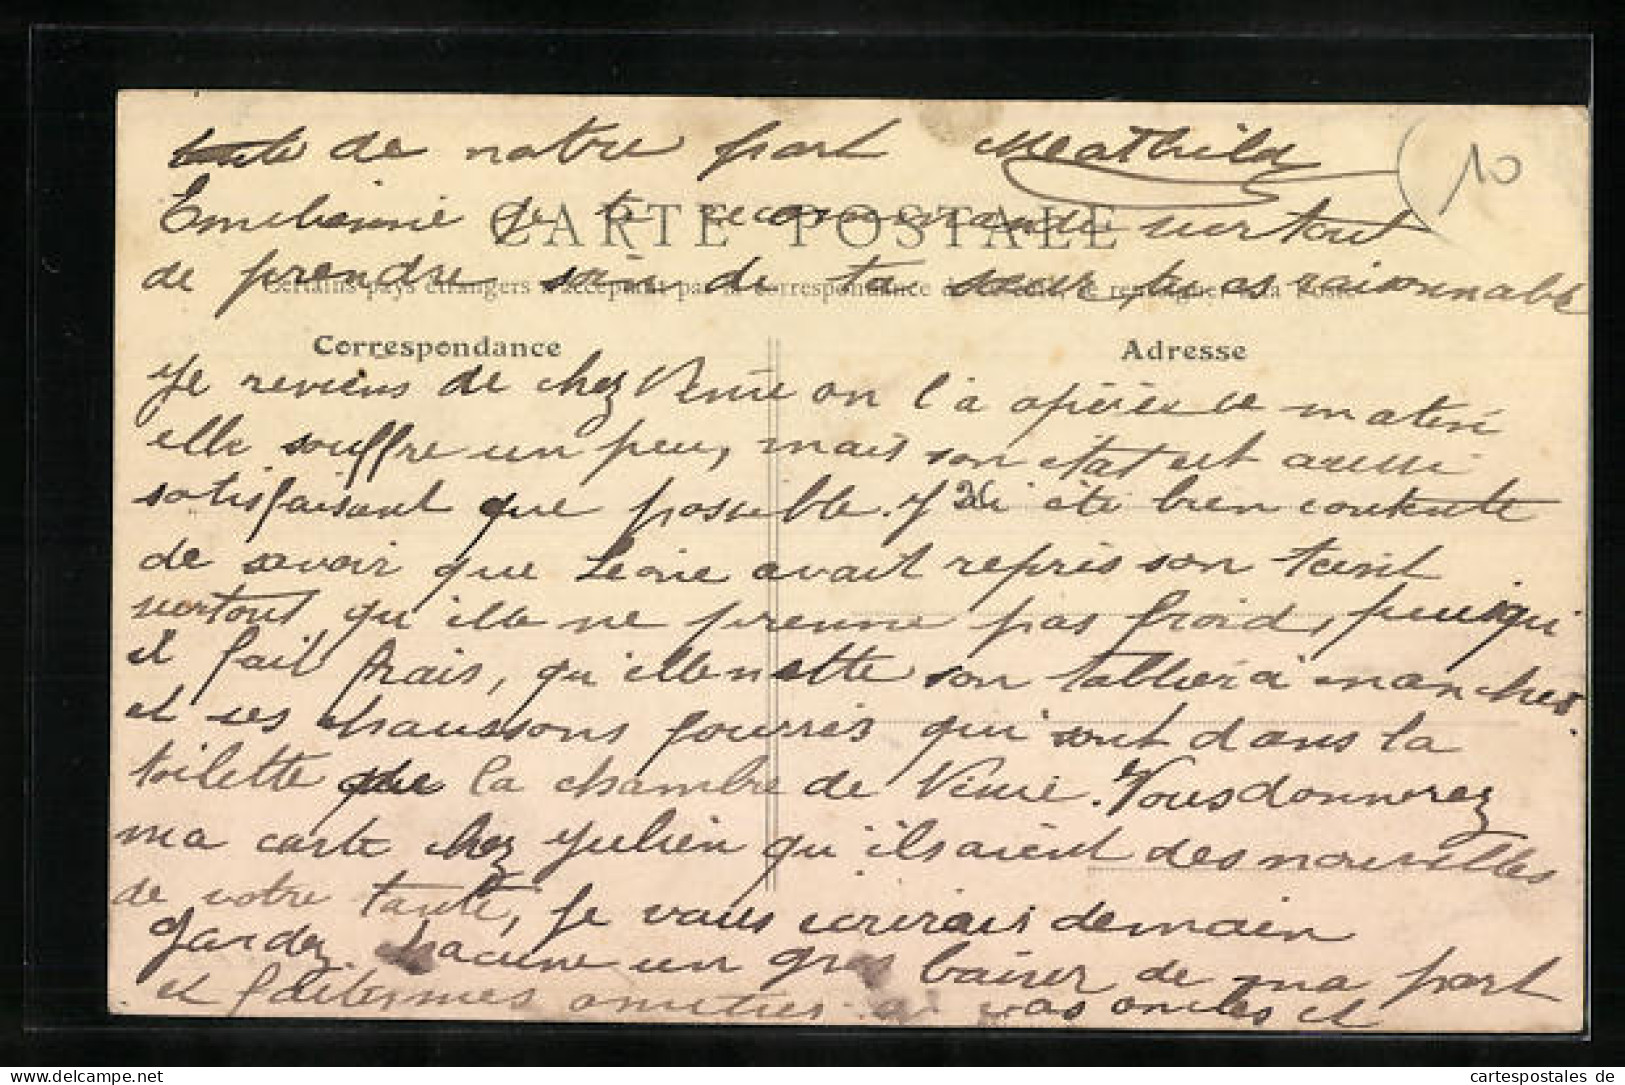 tante de notre part Mathilde
10
Emilienne je te recommande surtout
CARTE POSTALE
de prendre soin de ta sœur, plus raisonnable
Certains pays étrangers n'acceptent pas la correspondance se renseigner à la Poste
Correspondance
Adresse
Je reviens de chez on l'a opérée ce matin
elle souffre un peu, mais son état est aussi
satisfaisant que possible. J'ai été bien contente
de savoir que Léonie avait repris son teint
surtout qu'elle ne prenne pas froid, puisqu
il fait frais, qu'elle mette son tablier à manches
et ses chaussons fourrés qui sont dans la
toilette de la chambre de . Vous donnerez
ma carte chez Julien qu'ils aient des nouvelles
de votre tante, je vous écrirais demain
Gardez chacune un gros baiser de ma part
et faites mes amitiés à vos oncles et
www.delcampe.net
cartespostales de